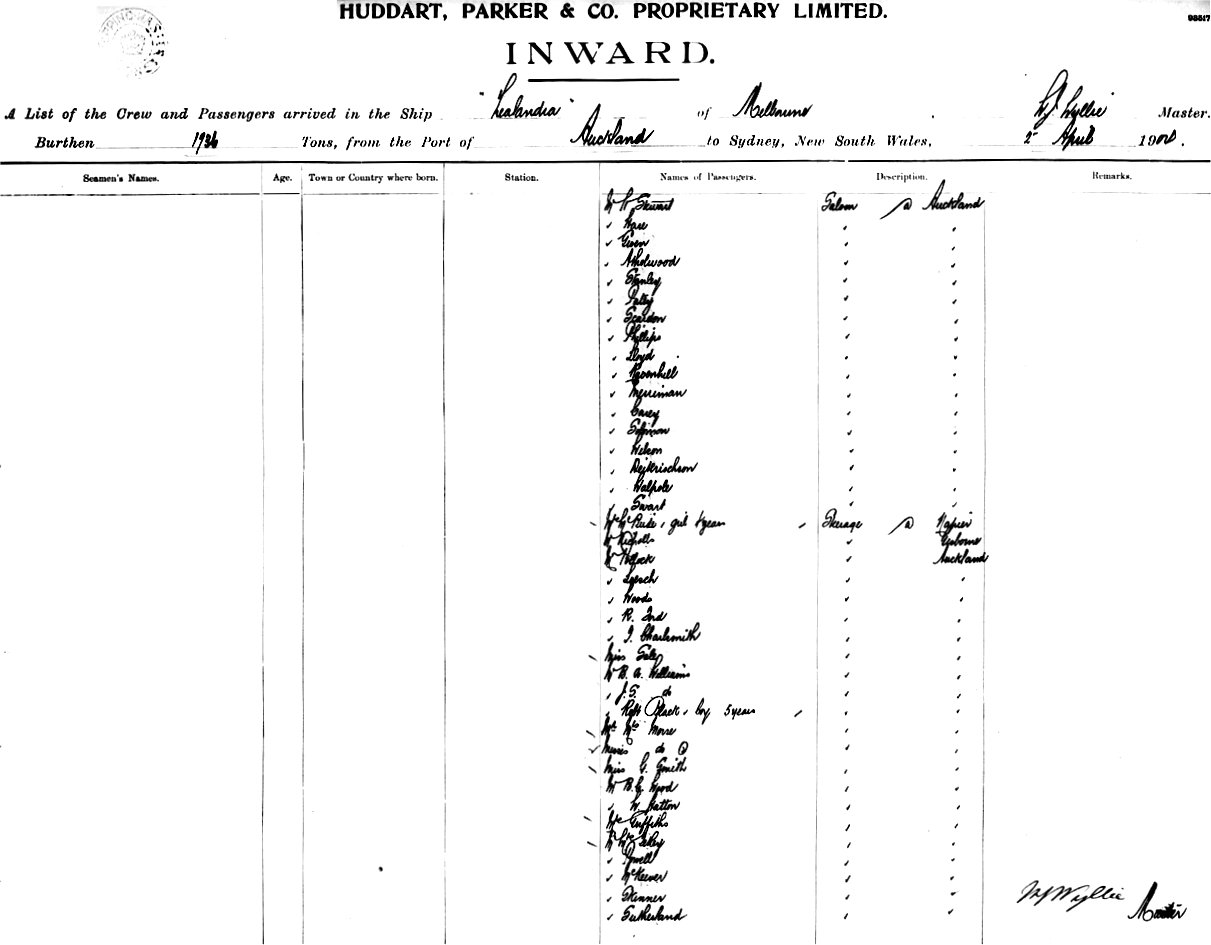 HUDDART, PARKER & CO. PROPRIETARY LIMITED.
98517
INWARD.
A List of the Crew and Passengers arrived in the Ship "Zealandia" of Melbourne W.J. Wyllie Master.
Burthen 1936 Tons, from the Port of Auckland to Sydney, New South Wales, 2nd April 190
Seamen's Names. Age. Town or Country where born. Station. Names of Passengers. Description. Remarks.
Mr W. Stewart Saloon @ Auckland
" Ware " "
" Green " "
" " "
" Stanley " "
" " "
" Scardon " "
" Phillips " "
" Lloyd " "
" Ravenhill " "
" Merriman " "
" Carey " "
" Solomon " "
" Wilson " "
" " "
" Walpole " "
" Swart " "
girl years Steerage @ Napier
Mr Nicholls " Gisborne
Mr Pollock " Auckland
" Loesch " "
" Woods " "
" R. Ford " "
" J. Charlesmith " "
Miss " "
Mr B. A. Williams " "
" J. S. do " "
" Black, boy 5 years " "
Mr Mrs Morse " "
do " "
Miss G. Smith " "
Mr B. G. Wood " "
" W. Hatton " "
Griffiths " "
Mr Mrs " "
" Powell " "
" McKeever " "
" Skinner " "
" Sutherland " "
WJ Wyllie Master